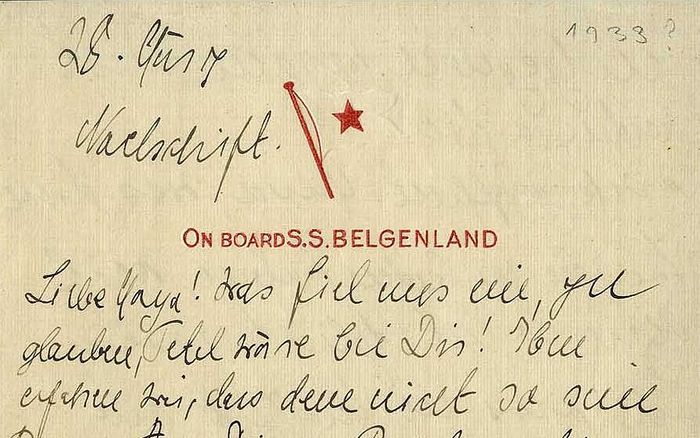 1933?
28. März
Nachschrift.
ON BOARD S.S. BELGENLAND
Liebe Maja! Was fiel uns ein, zu
glauben, Tetel wäre bei Dir! Eben
erfahren wir, dass dem nicht so sein